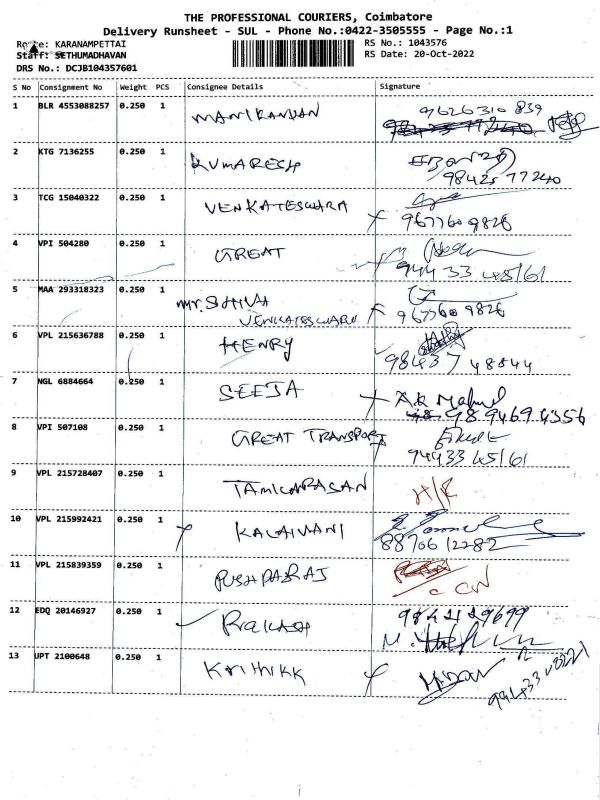 THE PROFESSIONAL COURIERS, Coimbatore
Delivery Runsheet - SUL - Phone No.:0422-3505555 - Page No.:1
Route: KARANAMPETTAI
RS No.: 1043576
Staff: SETHUMADHAVAN
RS Date: 20-Oct-2022
DRS No.: DCJB104357601
S No Consignment No Weight PCS Consignee Details Signature
1 BLR 4553088257 0.250 1 MANIKANDAN 9626310 839
2 KTG 7136255 0.250 1 KUMARESH
98425 77240
3 TCG 15040322 0.250 1 VENKATESWARA
967760 9826
4 VPI 504280 0.250 1 GREAT
94433 45161
5 MAA 293318323 0.250 1 Mr. SHIVA
VENKATESWARA 967760 9826
6 VPL 215636788 0.250 1 HENRY
98437 48844
7 NGL 6884664 0.250 1 SEEJA
98 9469 4356
8 VPI 507108 0.250 1 GREAT TRANSPORT
94433 45161
9 VPL 215728407 0.250 1 TAMILARASAN H/R
10 VPL 215992421 0.250 1 KALAIVANI
88706 12282
11 VPL 215839359 0.250 1 PUSHPARAJ
12 EDQ 20146927 0.250 1 PRAKASH
13 UPT 2100648 0.250 1 KARTHIKK